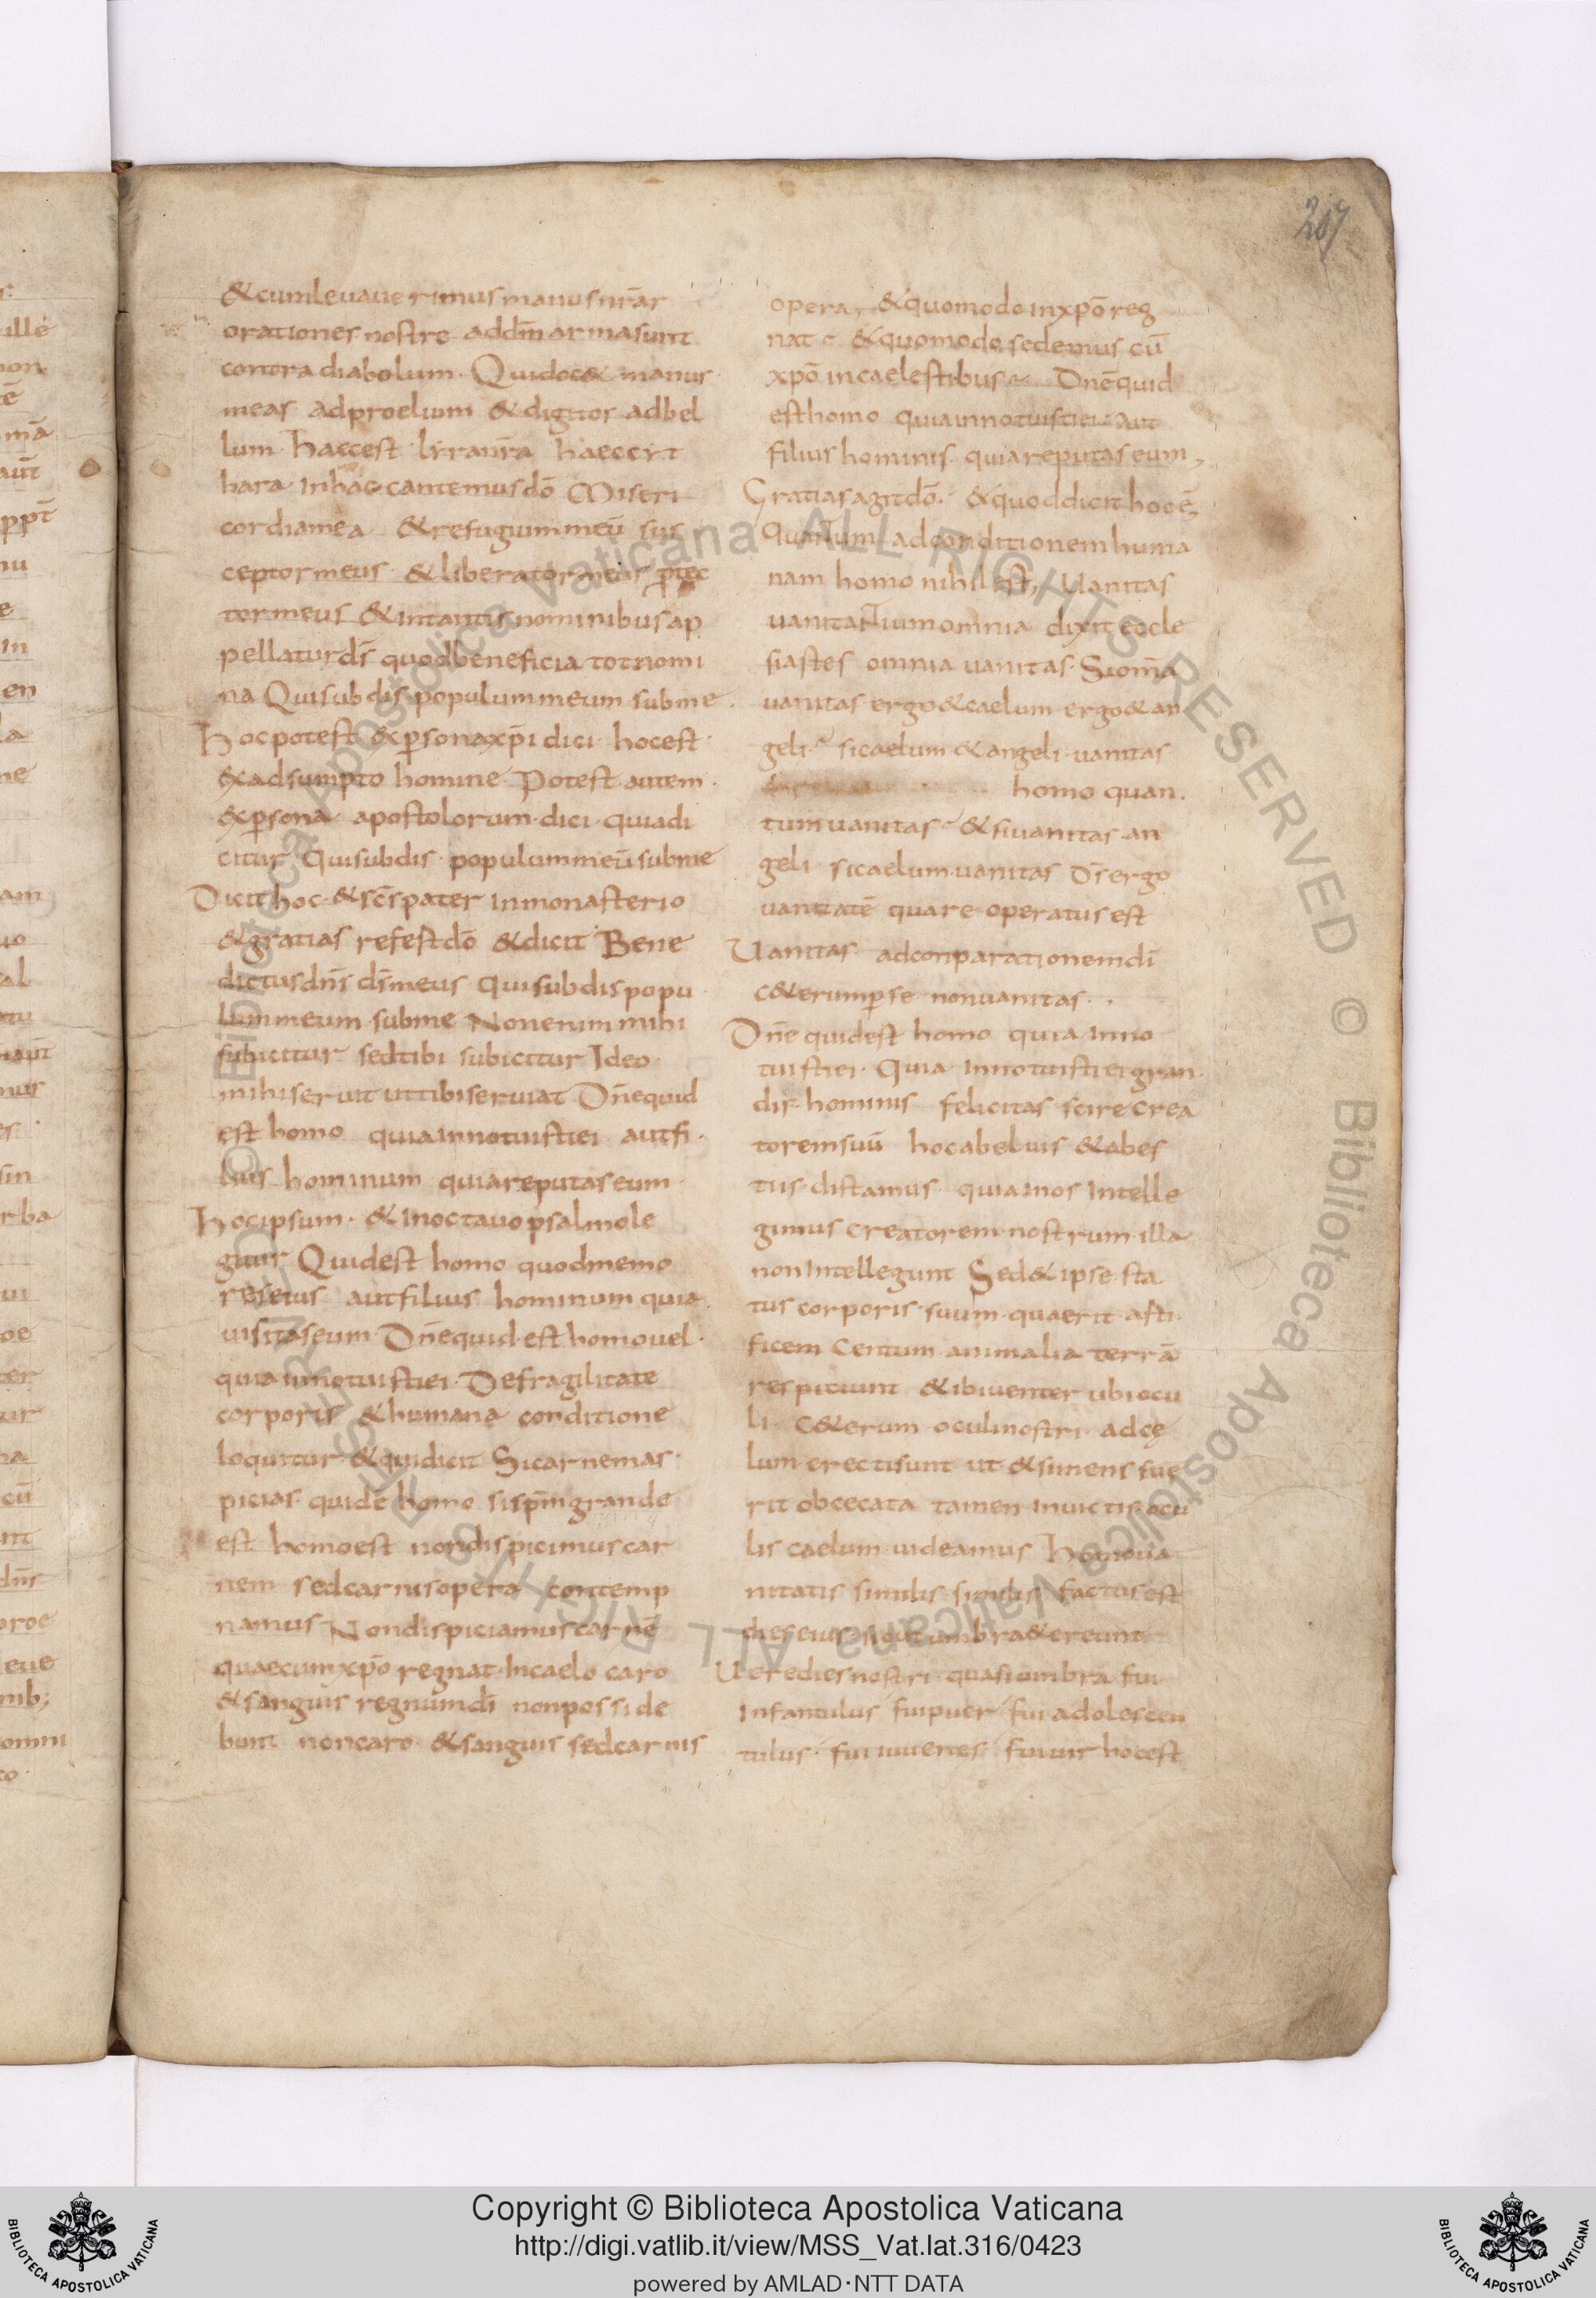 209
&cumleuauerimusmanusnrās
orationes nostre addm̄ armasunt
contra diabolum. Quidoc& manus
meas adproelium &digitos adbel
lum. haecest lyranr̄a haeccyt
hara Inhac cantemusdō Miseri
cordiamea &refugiummeū sus
ceptormeus &liberatormeus ꝓtec
tormeus &intantisnominibusap
pellaturds̄ quodbeneficia totnomi
na Quisubdis populummeum subme
Hocpotest &ꝑsonaxp̄i dici. hocest
&xadsumpto homine. Potest autem
&xꝑsona apostolorum dici quiadi
citur Quisubdis populummeūsubme
Dicithoc &scs̄pater inmonasterio
&gratias refestdō &dicit Bene
dictusdns̄ ds̄meus Quisubdispopu
lummeum subme Nonenim mihi
subicitur sedtibi subicitur Ideo
mihiseruit uttibiseruiat Dn̄equid
est homo quiainnotuistiei autfi
lius hominum quiareputaseum
Hocipsum. &Inoctauopsalmole
gitur Quidest homo quodmemo
reseius autfilius hominum quia
uisitaseum. Dn̄equid est homouel
quiainnotuistiei. Defragilitate
corporis &humana conditione
loquitur &quidicit Sicarnemas
picias quidē homo sisp̄mgrande
est homoest nondispicimuscar
nem sedcarnisopera contemp
namus Nondispiciamuscarnē
quaecumxp̄o regnat Incaelo caro
&sanguis regnumdī nonposside
bunt noncaro &sanguis sedcarnis
opera, &quomodo inxp̄oreg
nat &quomodo sedemus cū
xp̄o incaelestibus Dn̄equid
esthomo quiainnotuistiei aut
filius hominis quiareputaseum,
Gratiasagitdō. &quoddicithocē,
Quantum adconditionemhuma
nam homo nihilest, Uanitas
uanitatiumomnia dixit eccle
siastes omnia uanitas. Siomn̄a
uanitas ergo&caelum ergo&an
geli. sicaelum &angeli uanitas
homo quan
tumuanitas &siuanitas an
geli sicaelumuanitas Ds̄ergo
uanitatē quare operatusest
Uanitas adconparationemdī
c&erumꝑse nonuanitas.
Dn̄e quidest homo quia inno
tuistiei. Quia innotuistieigran
dis hominis felicitas scire crea
toremsuū hocabeluis &abes
tiis distamus quianos Intelle
gimus creatorem nostrum illa
nonIntellegunt Sed&ipse sta
tus corporis suum quaerit asti
ficem Centum animalia terrā
respiciunt &ibiuenter ubiocu
li. C&erum oculinostri adcę
lum erectisunt ut &simens fue
rit obcecata tamen inuictis ocu
lis caelum uideamus Homoua
nitatis similis similis factusest
dieseius sicutumbra&ereunt
Ueredies nostri quasiumbra fui
Infantulus fuipuer fui adolescen
tulus fuiiuuenes fuiuir hocest
Copyright © Biblioteca Apostolica Vaticana
http://digi.vatlib.it/view/MSS_Vat.lat.316/0423
powered by AMLAD·NTT DATA